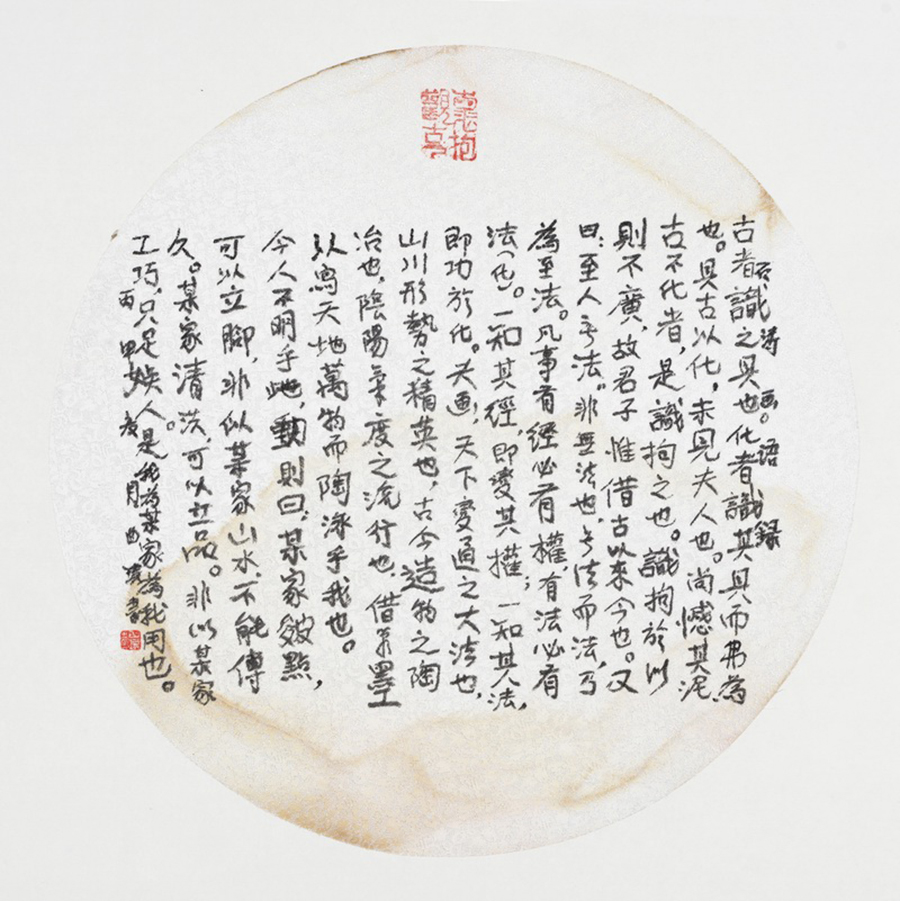 石涛画。语録
古者識之具也。化者識其具而弗為
也。具古以化,未見夫人也。尚憾其泥
古不化者,是識拘之也。識拘於似
則不廣,故君子惟借古以來今也。又
曰:至人无法。非無法也,无法而法,乃
為至法。凡事有經必有權,有法必有
法(化)。一知其經,即變其權;一知其法,
即功於化。夫画,天下變通之大法也,
山川形勢之精英也,古今造物之陶
冶也,陰陽氣度之流行也,借筆墨
以寫天地萬物而陶泳乎我也。
今人不明乎此,動則曰:某家皴點,
可以立脚,非似某家山水,不能傳
久。某家清淡,可以立品。非似某家
工巧,只足娱人。是我為某家為我用也。
丙申月書